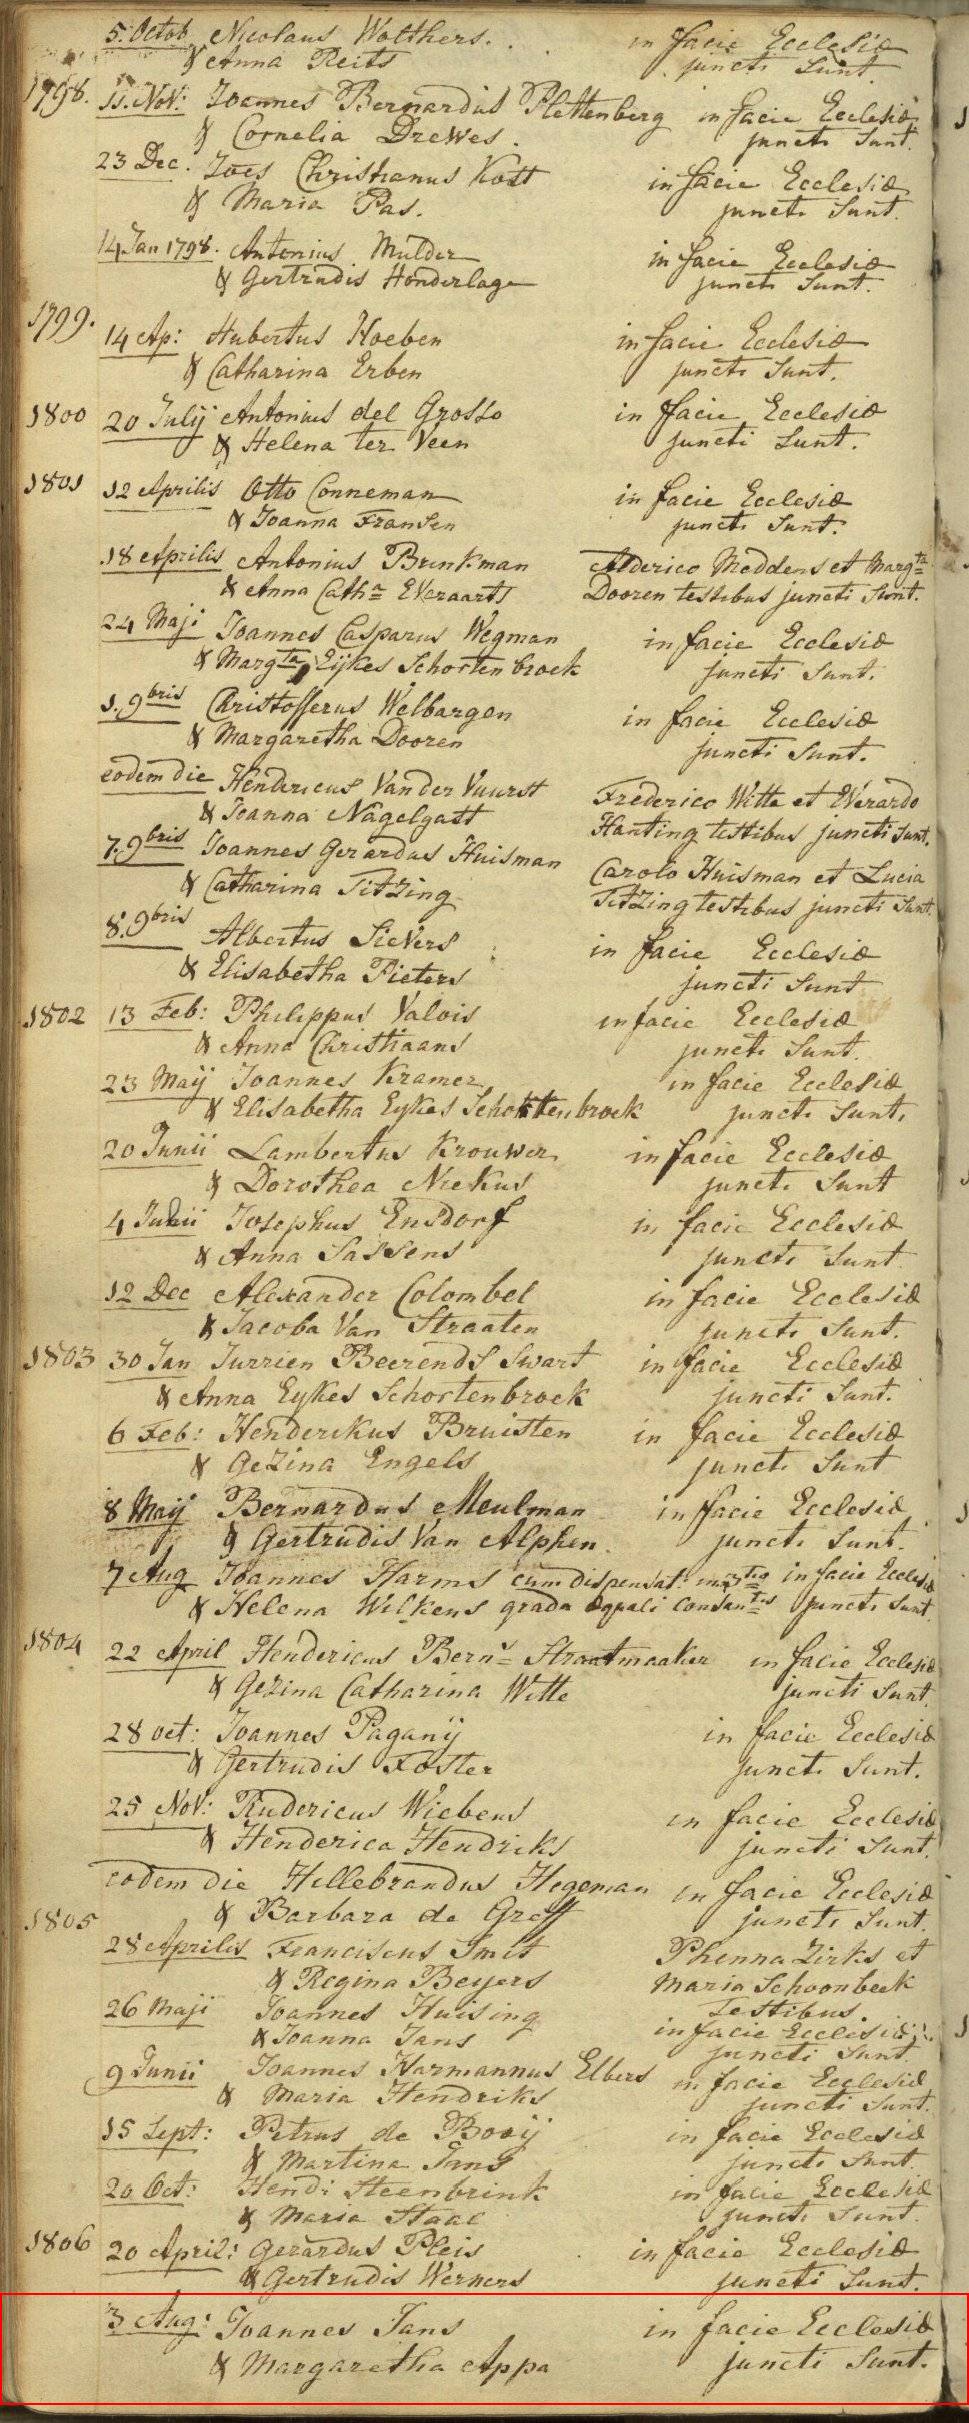 5. Octob Nicolaus Wolthers. in facie Ecclesiæ
& Anna Reits juncti Sunt.
1798. 11. Nov: Joannes Bernardus Plettenberg in facie Ecclesiæ
& Cornelia Drewes. juncti Sunt.
23 Dec. Joes Christianus Kott in facie Ecclesiæ
& Maria Pas. juncti Sunt.
14 Jan 1798. Antonius Mulder in facie Ecclesiæ
& Gertrudis Honderlage juncti Sunt.
1799.
14 Ap: Hubertus Hoeben in facie Ecclesiæ
& Catharina Erben juncti Sunt.
1800 20 Julij Antonius del Grosso in facie Ecclesiæ
& Helena ter Veen juncti Sunt.
1801 12 Aprilis Otto Conneman in facie Ecclesiæ
& Joanna Fransen juncti Sunt.
18 Aprilis Antonius Brinkman Alderico Moddens et Margta
& Anna Catha Everaarts Dooren testibus juncti Sunt.
24 Maji Joannes Casparus Wegman in facie Ecclesiæ
& Margta Eijkes Schortenbroek juncti Sunt.
1. 9bris Christofferus Welbargen in facie Ecclesiæ
& Margaretha Dooren juncti Sunt.
eodem die Hendericus Van der Vuurst Frederico Witte et Everardo
& Joanna Nagelgast Hanting testibus juncti Sunt.
7. 9bris Joannes Gerardus Huisman Carolo Huisman et Lucia
& Catharina Titzing Titzing testibus juncti Sunt.
8. 9bris Albertus Sievers in facie Ecclesiæ
& Elisabetha Pieters juncti Sunt
1802 13 Feb: Philippus Valois in facie Ecclesiæ
& Anna Christiaans juncti Sunt.
23 Maij Joannes Kramer in facie Ecclesiæ
& Elisabetha Eykes Schortenbroek juncti Sunt.
20 Junii Lambertus Krouwer in facie Ecclesiæ
& Dorothea Niekus juncti Sunt
4 Julii Josephus Ensdorf in facie Ecclesiæ
& Anna Sassens juncti Sunt
12 Dec Alexander Colombel in facie Ecclesiæ
& Jacoba Van Straaten juncti Sunt.
1803 30 Jan Jurrien Beerends Swart in facie Ecclesiæ
& Anna Eykes Schortenbroek juncti Sunt.
6 Feb: Henderikus Bruisten in facie Ecclesiæ
& Gezina Engels juncti Sunt
8 Maij Bernardus Meulman in facie Ecclesiæ
& Gertrudis Van Alphen juncti Sunt.
7 Aug Joannes Harms cum dispensat: in facie Ecclesiæ
& Helena Wilkens gradu æquali juncti Sunt.
1804
22 April Hendericus Berns Straatmaaker in facie Ecclesiæ
& Gezina Catharina Witte juncti Sunt
28 oct: Joannes Paganij in facie Ecclesiæ
& Gertrudis Foster juncti Sunt.
25 Nov: Rudericus Wiebens in facie Ecclesiæ
& Henderica Hendriks juncti Sunt.
eodem die Hillebrandus Hegeman in facie Ecclesiæ
1805 & Barbara de Greff juncti Sunt.
28 Aprilis Franciscus Smit Phenna Zirks et
& Regina Beyers Maria Schoonbeek
26 Maji Joannes Huising Testibus
& Joanna Jans in facie Ecclesiæ
juncti Sunt.
9 Junii Joannes Harmannus Elbers in facie Ecclesiæ
& Maria Hendriks juncti Sunt.
15 Sept: Petrus de Booij in facie Ecclesiæ
& Martina Jans juncti Sunt.
20 Oct: Hendi Steenbrink in facie Ecclesiæ
& Maria Staal juncti Sunt.
1806 20 April: Gerardus Pleis in facie Ecclesiæ
& Gertrudis Werners juncti Sunt.
3 Aug: Joannes Jans in facie Ecclesiæ
& Margaretha Appa juncti Sunt.